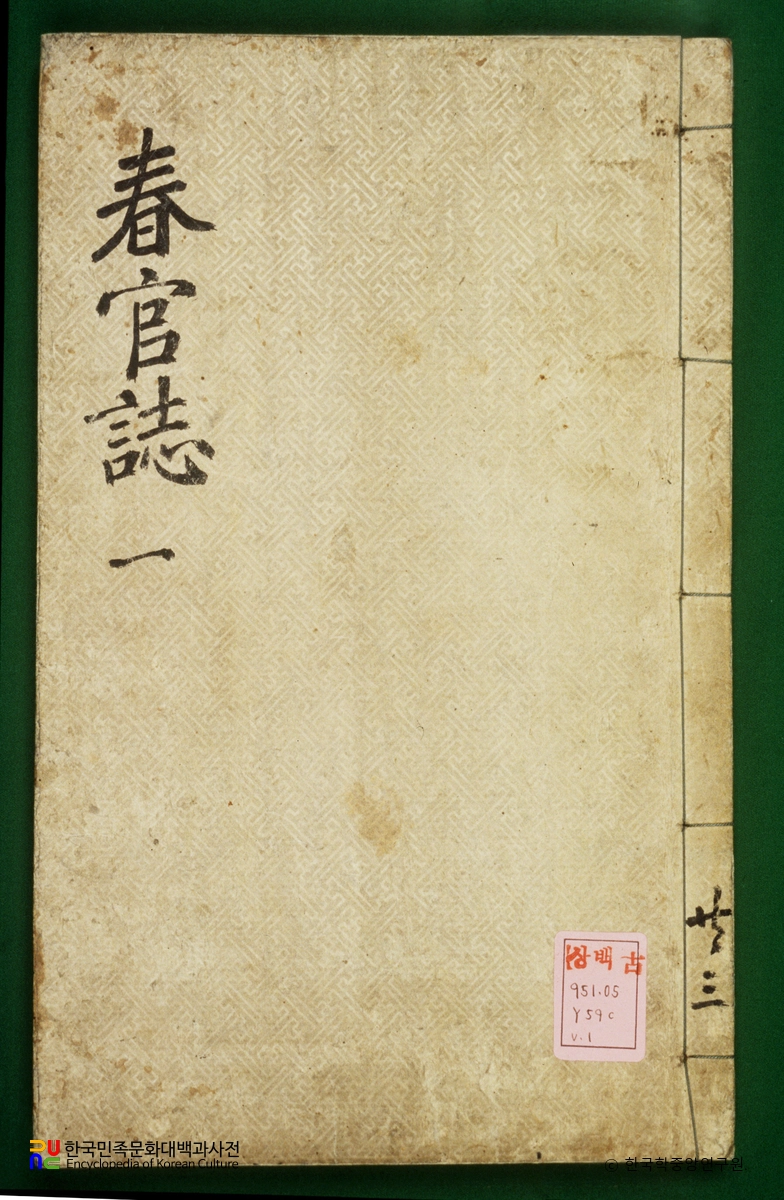 春官誌 一
共三
상백古
951.05
Y59c
v.1
한국민족문화대백과사전
Encyclopedia of Korean Culture
ⓒ 한국학중앙연구원